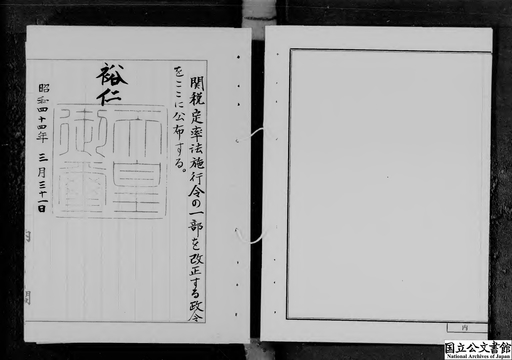 関税定率法施行令の一部を改正する政令
をここに公布する。
裕仁
天皇
御璽
昭和四十四年 三月三十一日
内
国立公文書館
National Archives of Japan